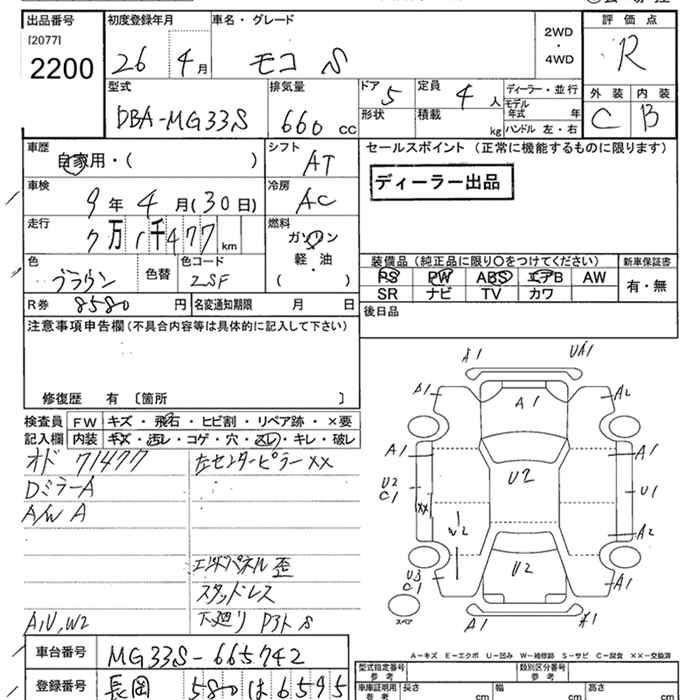 出品番号 初度登録年月 車名・グレード 評価点
[2077] 2WD
2200 26 4月 モコ S ・ R
4WD
型式 排気量 ドア 5 定員 4人 ディーラー・並行 外装 内装
DBA-MG33S 660cc 形状 積載 kg モデル年式 年 C B
ハンドル 左・右
車歴 シフト セールスポイント (正常に機能するものに限ります)
自家用・( ) AT
ディーラー出品
車検 冷房
9年4月(30日) AC
走行 燃料
7万1千477km ガソリン
軽・油
( )
色 色替 色コード 装備品 (純正品に限り○をつけてください) 新車保証書
ブラウン ZSF PS PW ABS エアB AW 有・無
SR ナビ TV カワ
R券 8580円 名変通知期限 月 日 後日品
注意事項申告欄 (不具合内容等は具体的に記入して下さい)
修復歴 有 〔箇所 〕
検査員 FW キズ・飛石・ヒビ割・リペア跡・×要
記入欄 内装 キズ・汚レ・コゲ・穴・スレ・キレ・破レ
オド 71477 左センターピラーXX
DミラーA
A/W A
エンドパネル歪
スタッドレス
A1U,W2 下廻り P3ト S
A1 UA1
A1 A1 A2
A1 A1
U2 C1 U2 U1
XX
W2 A2
U3 C1 U2 A1
スペア A1 A1
A-キズ E-エクボ U-凹み W-補修跡 S-サビ C-腐食 XX-交換済
車台番号 MG33S-665742 型式指定番号 参考 類別区分番号 参考
登録番号 長岡 580 は 6595 車庫証明用 参考 長さ cm 幅 cm 高さ cm